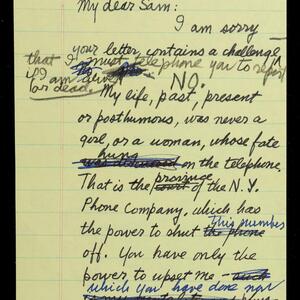 My dear Sam:
I am sorry
your letter contains a challenge
that I must telephone you to report
if I am alive
or dead. NO.
My life, past, present
or posthumous, was never a
girl, or a woman, whose fate
hung
on the telephone.
province
That is the court of the N.Y.
Phone Company, which has
this number
the power to shut the phone
off. You have only the
power to upset me —
which you have done now